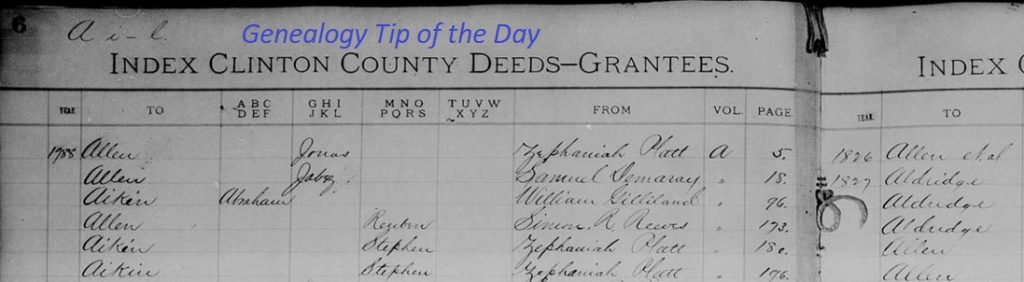 6 A i-l. Genealogy Tip of the Day
INDEX CLINTON COUNTY DEEDS—GRANTEES.
YEAR. TO ABC DEF GHI JKL MNO PQRS TUVW XYZ FROM VOL. PAGE
1788 Allen Jonas Zephaniah Platt A 5.
Allen Jabez Samuel Demaray " 18.
Aiken Abraham William Gilliland " 96.
Allen Reuben Simon R. Reeves " 173.
Aiken Stephen Zephaniah Platt " 180.
Aikin Stephen Zephaniah Platt " 196.
INDEX C
YEAR. TO
1826 Allen et al
1827 Aldridge
Aldridge
Aldridge
Allen
Allen